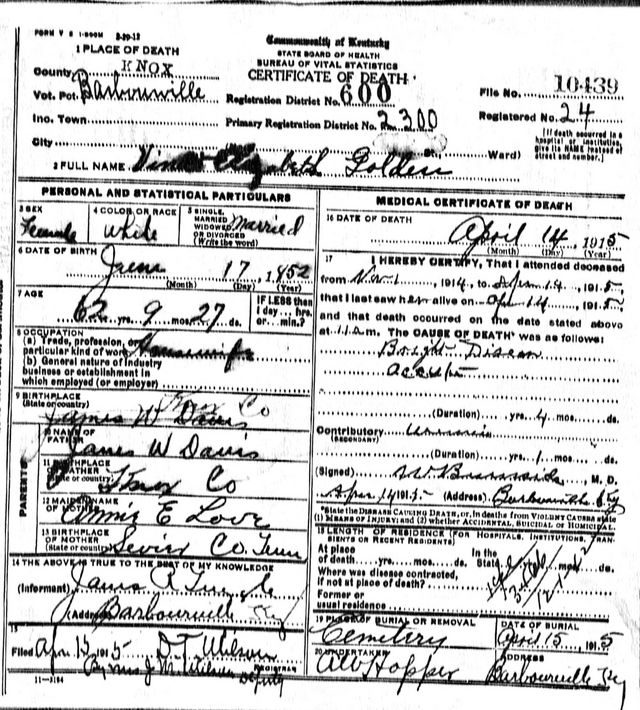 FORM V S 1-500M 3-29-12
1 PLACE OF DEATH
Commonwealth of Kentucky
STATE BOARD OF HEALTH
BUREAU OF VITAL STATISTICS
CERTIFICATE OF DEATH
County KNOX
Vot. Pct. Barbourville
Registration District No. 600
File No. 10439
Inc. Town
Primary Registration District No. 2300
Registered No. 24
City
St., Ward)
[If death occurred in a hospital or institution, give its NAME instead of street and number.]
2 FULL NAME Elizabeth Golden
PERSONAL AND STATISTICAL PARTICULARS
3 SEX
Female
4 COLOR OR RACE
White
5 SINGLE, MARRIED WIDOWED OR DIVORCED (Write the word)
Married
6 DATE OF BIRTH
June 17, 1852
(Month) (Day) (Year)
7 AGE
62 yrs. 9 mos. 27 ds.
IF LESS than 1 day... hrs. or... min.?
8 OCCUPATION
(a) Trade, profession, or
particular kind of work Housewife
(b) General nature of industry
business or establishment in
which employed (or employer)
9 BIRTHPLACE
(State or country) Knox Co
James W Davis
10 NAME OF FATHER
James W Davis
PARENTS
11 BIRTHPLACE OF FATHER
(State or country) Knox Co
12 MAIDEN NAME OF MOTHER
Annie E Love
13 BIRTHPLACE OF MOTHER
(State or country) Sevier Co. Tenn
14 THE ABOVE IS TRUE TO THE BEST OF MY KNOWLEDGE
(Informant) James R
(Address) Barbourville Ky
15
Filed Apr. 15 1915 D.T. Wilson
REGISTRAR
By Mrs J. M. Wilson Deputy
11-3184
MEDICAL CERTIFICATE OF DEATH
16 DATE OF DEATH
April 14, 1915
(Month) (Day) (Year)
17
I HEREBY CERTIFY, That I attended deceased
from Nov 1, 1914, to Apr 14, 1915,
that I last saw her alive on Apr 14, 1915,
and that death occurred on the date stated above
at 11 a.m. The CAUSE OF DEATH was as follows:
Bright Disease
(Duration) yrs. 4 mos. ds.
Contributory Uremia
(SECONDARY)
(Duration) yrs. 1 mos. ds.
(Signed) Burnside, M. D.
Apr. 14 1915 (Address) Barbourville Ky
*State the DISEASE CAUSING DEATH, or, in deaths from VIOLENT CAUSES state
(1) MEANS OF INJURY; and (2) whether ACCIDENTAL, SUICIDAL or HOMICIDAL.
18 LENGTH OF RESIDENCE (FOR HOSPITALS, INSTITUTIONS, TRANSIENTS OR RECENT RESIDENTS)
At place of death yrs. mos. ds. In the State yrs. mos. ds.
Where was disease contracted,
if not at place of death?
Former or
usual residence
19 PLACE OF BURIAL OR REMOVAL
Cemetery
DATE OF BURIAL
April 15 1915
20 UNDERTAKER
AW Hopper
ADDRESS
Barbourville Ky